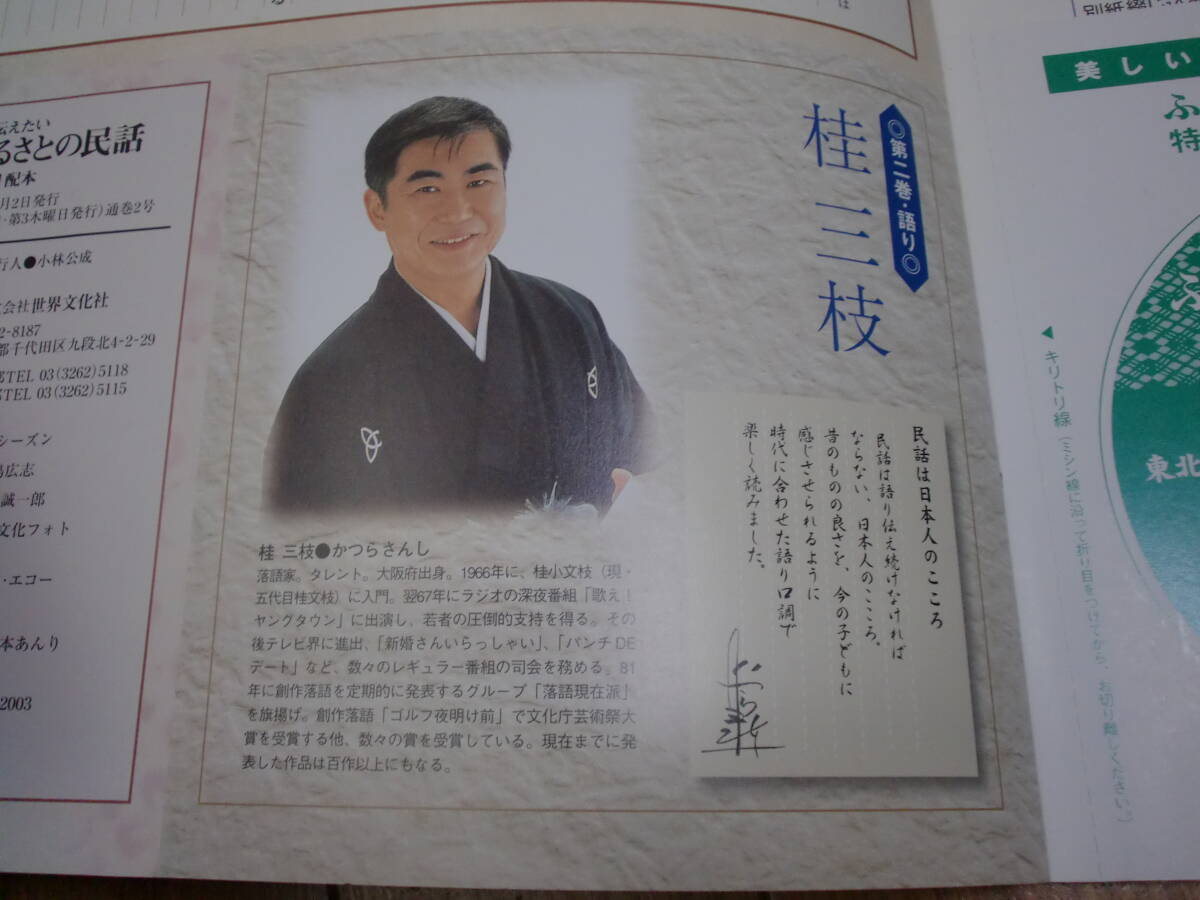 伝えたい
るさとの民話
配本
月2日発行
・第3木曜日発行）通巻2号
行人●小林公成
会社世界文化社
2-8187
都千代田区九段北4-2-29
TEL 03(3262)5118
TEL 03(3262)5115
シーズン
広志
誠一郎
文化フォト
・エコー
本あんり
2003
◎第二巻・語り◎
桂 三枝
民話は日本人のこころ
民話は語り伝え続けなければ
ならない、日本人のこころ。
昔のものの良さを、今の子どもに
感じさせられるように
時代に合わせた語り口調で
楽しく読みました。
桂 三枝●かつらさんし
落語家。タレント。大阪府出身。1966年に、桂小文枝（現・
五代目桂文枝）に入門。翌67年にラジオの深夜番組「歌え！
ヤングタウン」に出演し、若者の圧倒的支持を得る。その
後テレビ界に進出、「新婚さんいらっしゃい」、「パンチDE
デート」など、数々のレギュラー番組の司会を務める。81
年に創作落語を定期的に発表するグループ「落語現在派」
を旗揚げ。創作落語「ゴルフ夜明け前」で文化庁芸術祭大
賞を受賞する他、数々の賞を受賞している。現在までに発
表した作品は百作以上にもなる。
美しい
ふ
特
◀キリトリ線（ミシン線に沿って折り目をつけてから、お切り離しください。）
東北